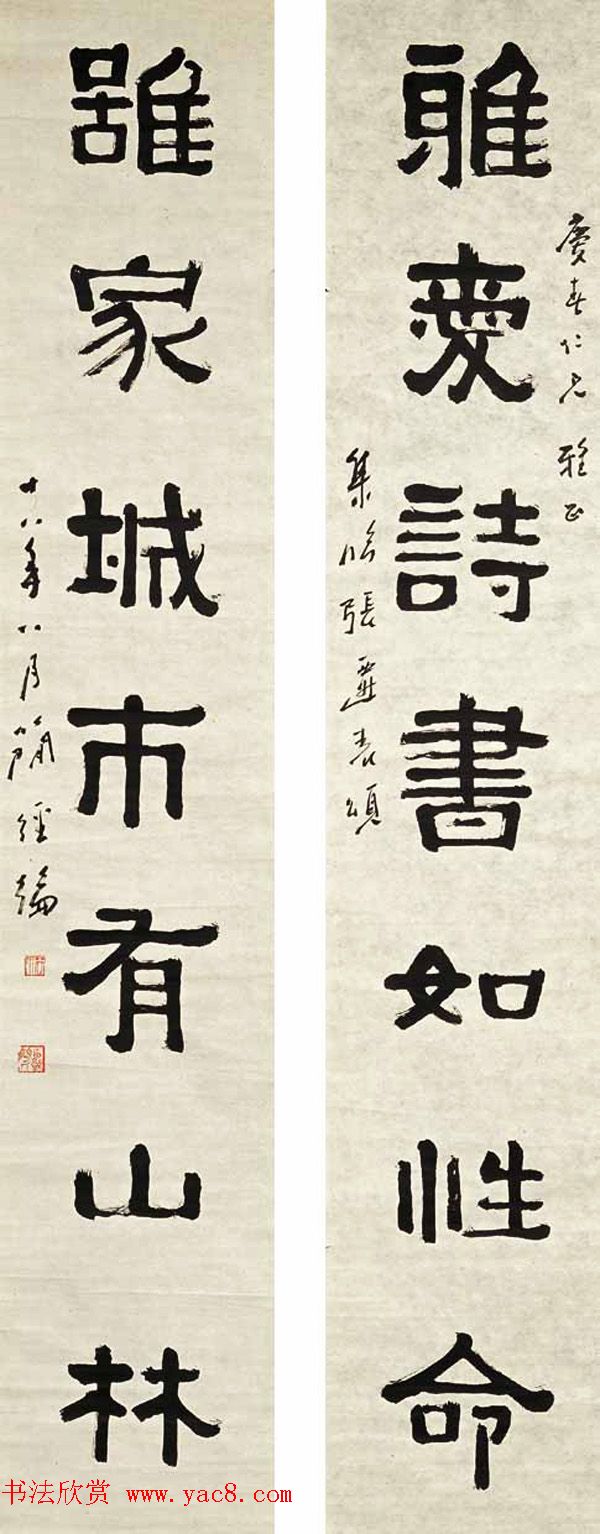 雅愛詩書如性命
慶春仁兄雅正
集臨張遷表頌
雖家城市有山林
十八年八月簡經綸
书法欣赏 www.yac8.com